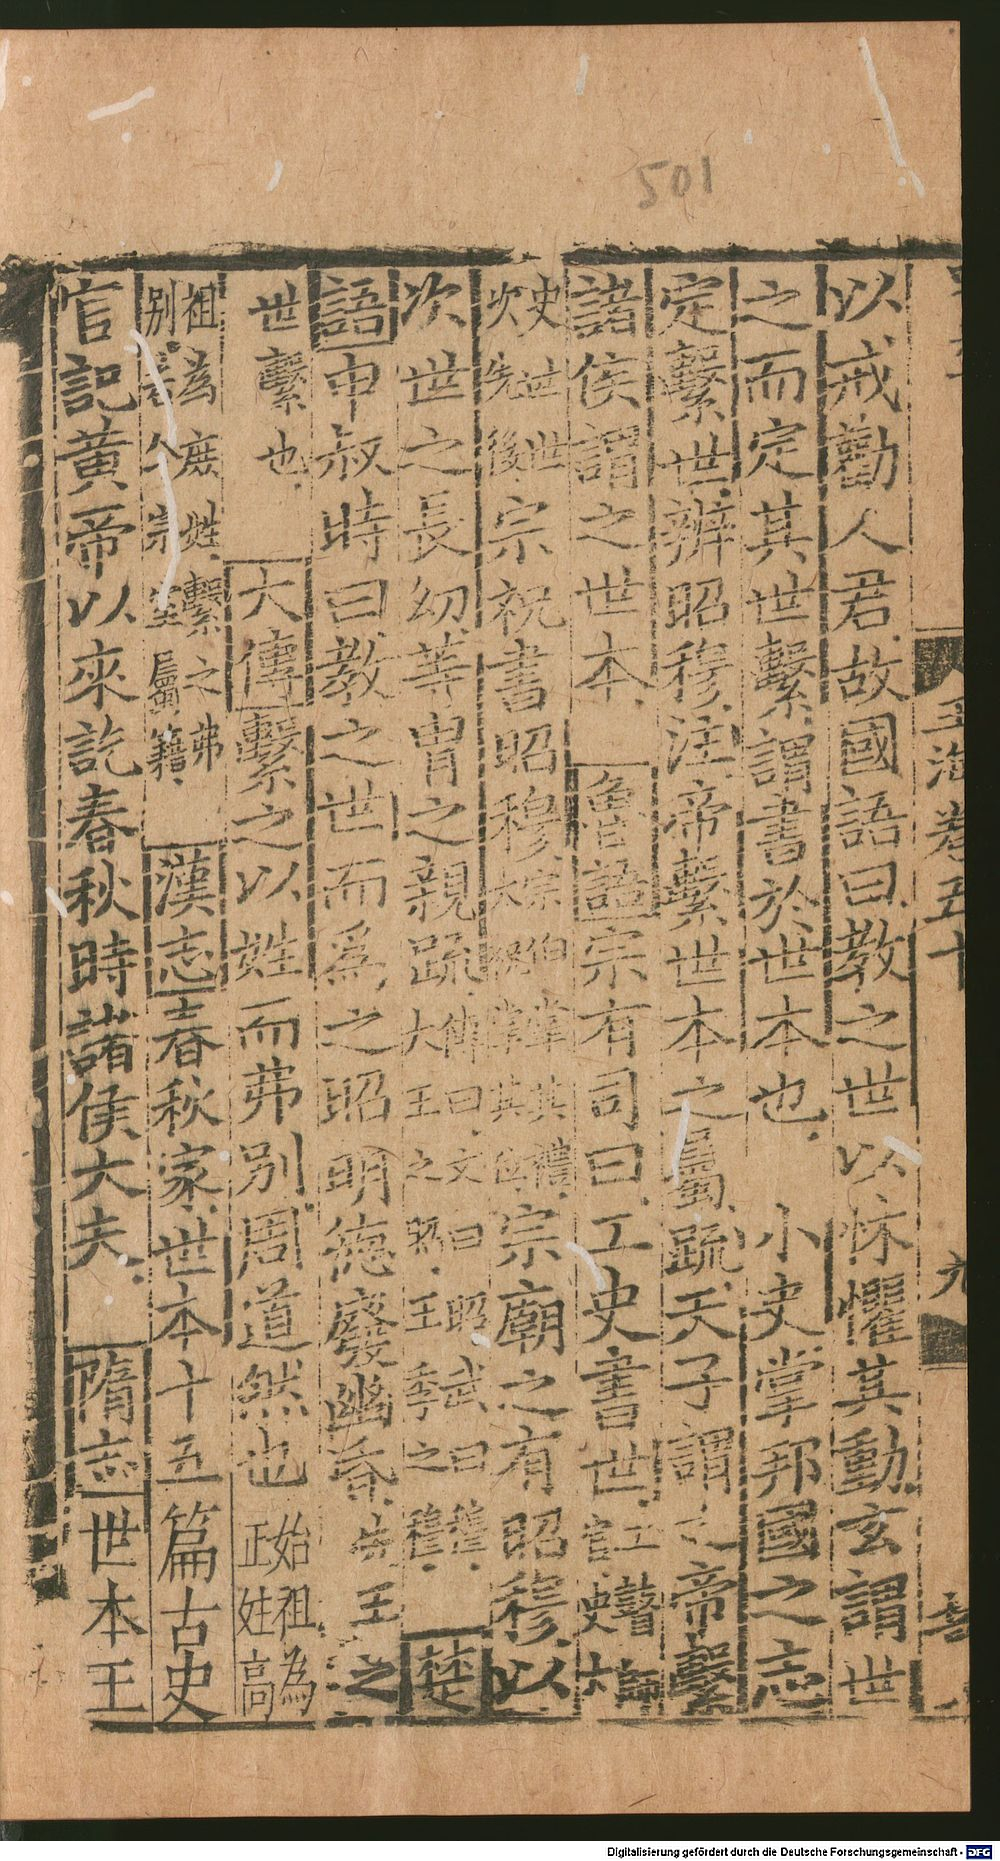 501
玉海卷五十
九
以戒勸人君故國語曰教之世以怵懼其動玄謂世
之而定其世繫謂書於世本也 小史掌邦國之志
定繫世辨昭穆注帝繫世本之屬疏天子謂之帝繫
諸侯謂之世本 魯語宗有司曰工史書世工瞽師官史大
史世世次先後宗祝書昭穆宗伯掌其禮大祝掌其位宗廟之有昭穆以
次世之長幼等胄之親疏傳曰文曰昭武曰穆大王之昭王季之穆 楚
語申叔時曰教之世而爲之昭明德廢幽昏先王之
世繫也 大傳繫之以姓而弗別周道然也始祖為正姓高
祖為庶姓繫之弗別若今宗室屬籍 漢志春秋家世本十五篇古史
官記黃帝以來訖春秋時諸侯大夫 隋志世本王
Digitalisierung gefördert durch die Deutsche Forschungsgemeinschaft - DFG